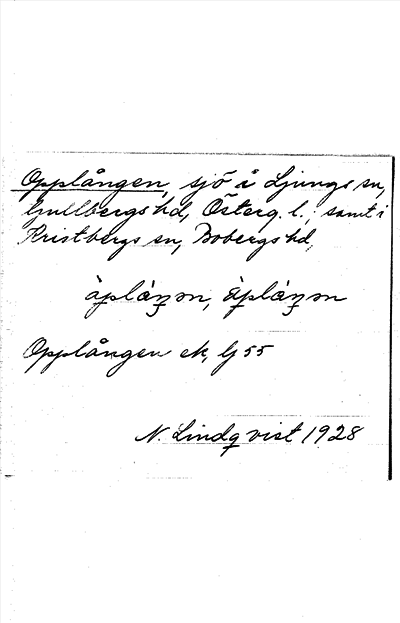 Opplången, sjö i Ljungs sn,
Gullbergs hd, Österg. l.; samt i
Kristbergs sn, Bobergs hd,
Opplången ek, Lj 55
N. Lindqvist 1928